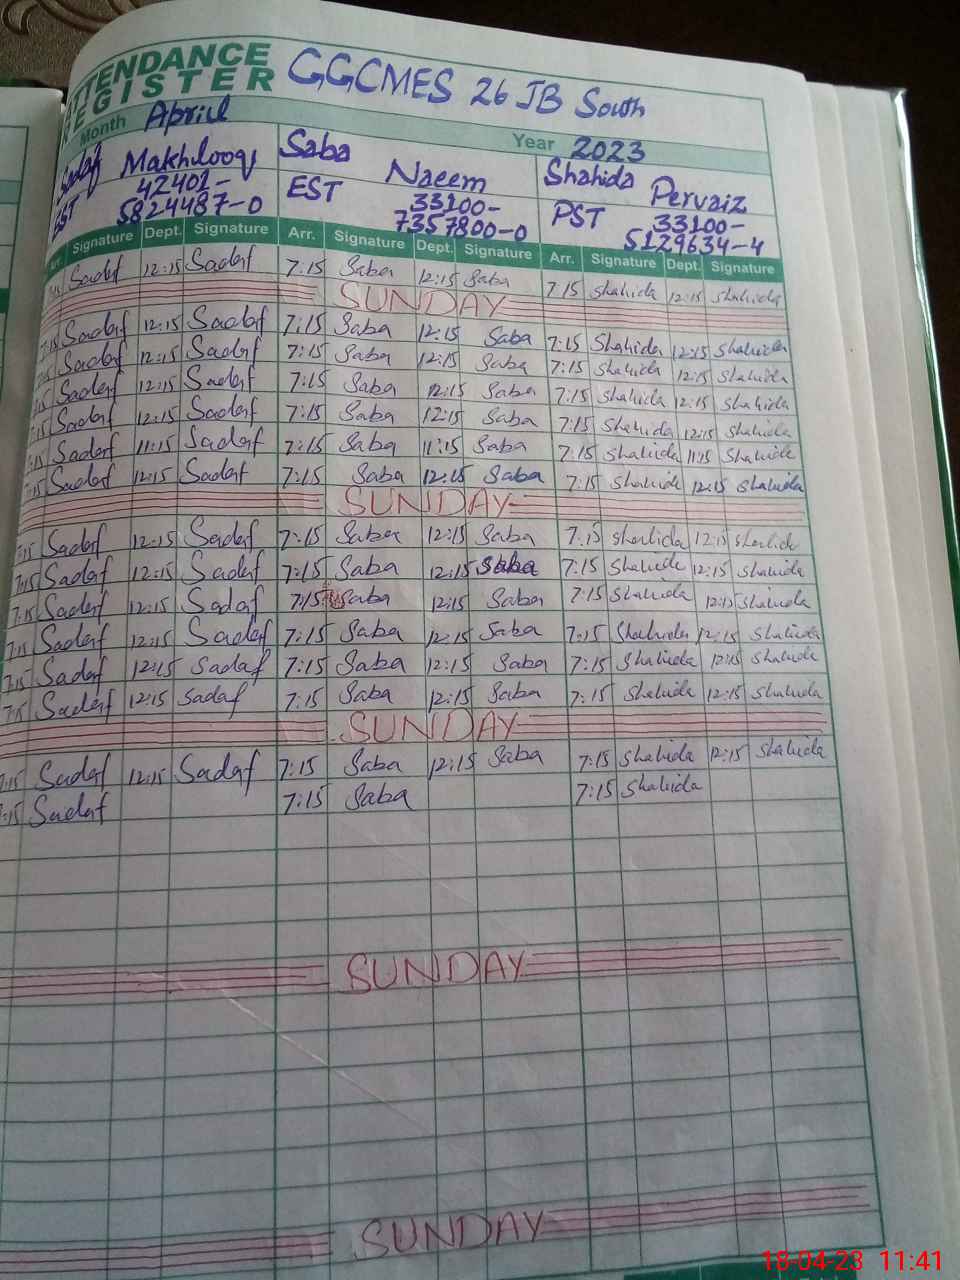 ATTENDANCE
REGISTER
GGCMES 26 JB South
Month Apriul Year 2023
Sadaf Makhlooq Saba Naeem Shahida Pervaiz
EST 42401- EST 33100- PST 33100-
5824487-0 7357800-0 5129634-4
Arr. Signature Dept. Signature Arr. Signature Dept. Signature Arr. Signature Dept. Signature
7:15 Sadaf 12:15 Sadaf 7:15 Saba 12:15 Saba 7:15 Shahida 12:15 Shahida
SUNDAY
7:15 Sadaf 12:15 Sadaf 7:15 Saba 12:15 Saba 7:15 Shahida 12:15 Shahida
7:15 Sadaf 12:15 Sadaf 7:15 Saba 12:15 Saba 7:15 Shahida 12:15 Shahida
7:15 Sadaf 12:15 Sadaf 7:15 Saba 12:15 Saba 7:15 Shahida 12:15 Shahida
7:15 Sadaf 12:15 Sadaf 7:15 Saba 12:15 Saba 7:15 Shahida 12:15 Shahida
7:15 Sadaf 11:15 Sadaf 7:15 Saba 11:15 Saba 7:15 Shahida 11:15 Shahida
7:15 Sadaf 12:15 Sadaf 7:15 Saba 12:15 Saba 7:15 Shahida 12:15 Shahida
SUNDAY
7:15 Sadaf 12:15 Sadaf 7:15 Saba 12:15 Saba 7:15 Shahida 12:15 Shahida
7:15 Sadaf 12:15 Sadaf 7:15 Saba 12:15 Saba 7:15 Shahida 12:15 Shahida
7:15 Sadaf 12:15 Sadaf 7:15 Saba 12:15 Saba 7:15 Shahida 12:15 Shahida
7:15 Sadaf 12:15 Sadaf 7:15 Saba 12:15 Saba 7:15 Shahida 12:15 Shahida
7:15 Sadaf 12:15 Sadaf 7:15 Saba 12:15 Saba 7:15 Shahida 12:15 Shahida
7:15 Sadaf 12:15 Sadaf 7:15 Saba 12:15 Saba 7:15 Shahida 12:15 Shahida
SUNDAY
7:15 Sadaf 12:15 Sadaf 7:15 Saba 12:15 Saba 7:15 Shahida 12:15 Shahida
7:15 Sadaf 7:15 Saba 7:15 Shahida
SUNDAY
SUNDAY
18-04-23 11:41